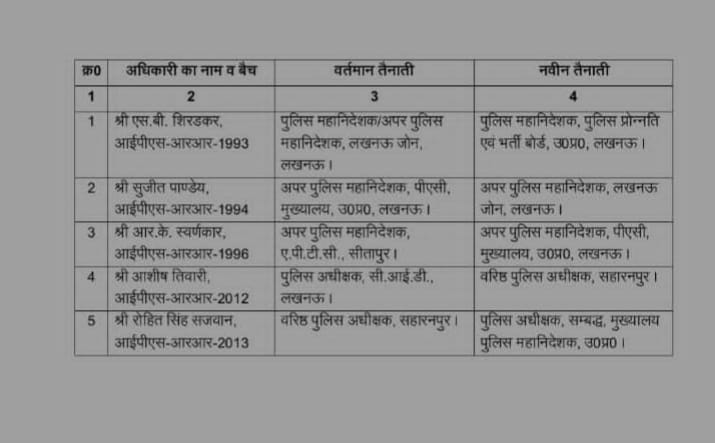 क्र0 अधिकारी का नाम व बैच वर्तमान तैनाती नवीन तैनाती
1 2 3 4
1 श्री एस.बी. शिरडकर, पुलिस महानिदेशक/अपर पुलिस पुलिस महानिदेशक, पुलिस प्रोन्नति
आईपीएस-आरआर-1993 महानिदेशक, लखनऊ जोन, एवं भर्ती बोर्ड, उ0प्र0, लखनऊ।
लखनऊ।
2 श्री सुजीत पाण्डेय, अपर पुलिस महानिदेशक, पीएसी, अपर पुलिस महानिदेशक, लखनऊ
आईपीएस-आरआर-1994 मुख्यालय, उ0प्र0, लखनऊ। जोन, लखनऊ।
3 श्री आर.के. स्वर्णकार, अपर पुलिस महानिदेशक, अपर पुलिस महानिदेशक, पीएसी,
आईपीएस-आरआर-1996 ए.पी.टी.सी., सीतापुर। मुख्यालय, उ0प्र0, लखनऊ।
4 श्री आशीष तिवारी, पुलिस अधीक्षक, सी.आई.डी., वरिष्ठ पुलिस अधीक्षक, सहारनपुर।
आईपीएस-आरआर-2012 लखनऊ।
5 श्री रोहित सिंह सजवान, वरिष्ठ पुलिस अधीक्षक, सहारनपुर। पुलिस अधीक्षक, सम्बद्ध, मुख्यालय
आईपीएस-आरआर-2013 पुलिस महानिदेशक, उ0प्र0।